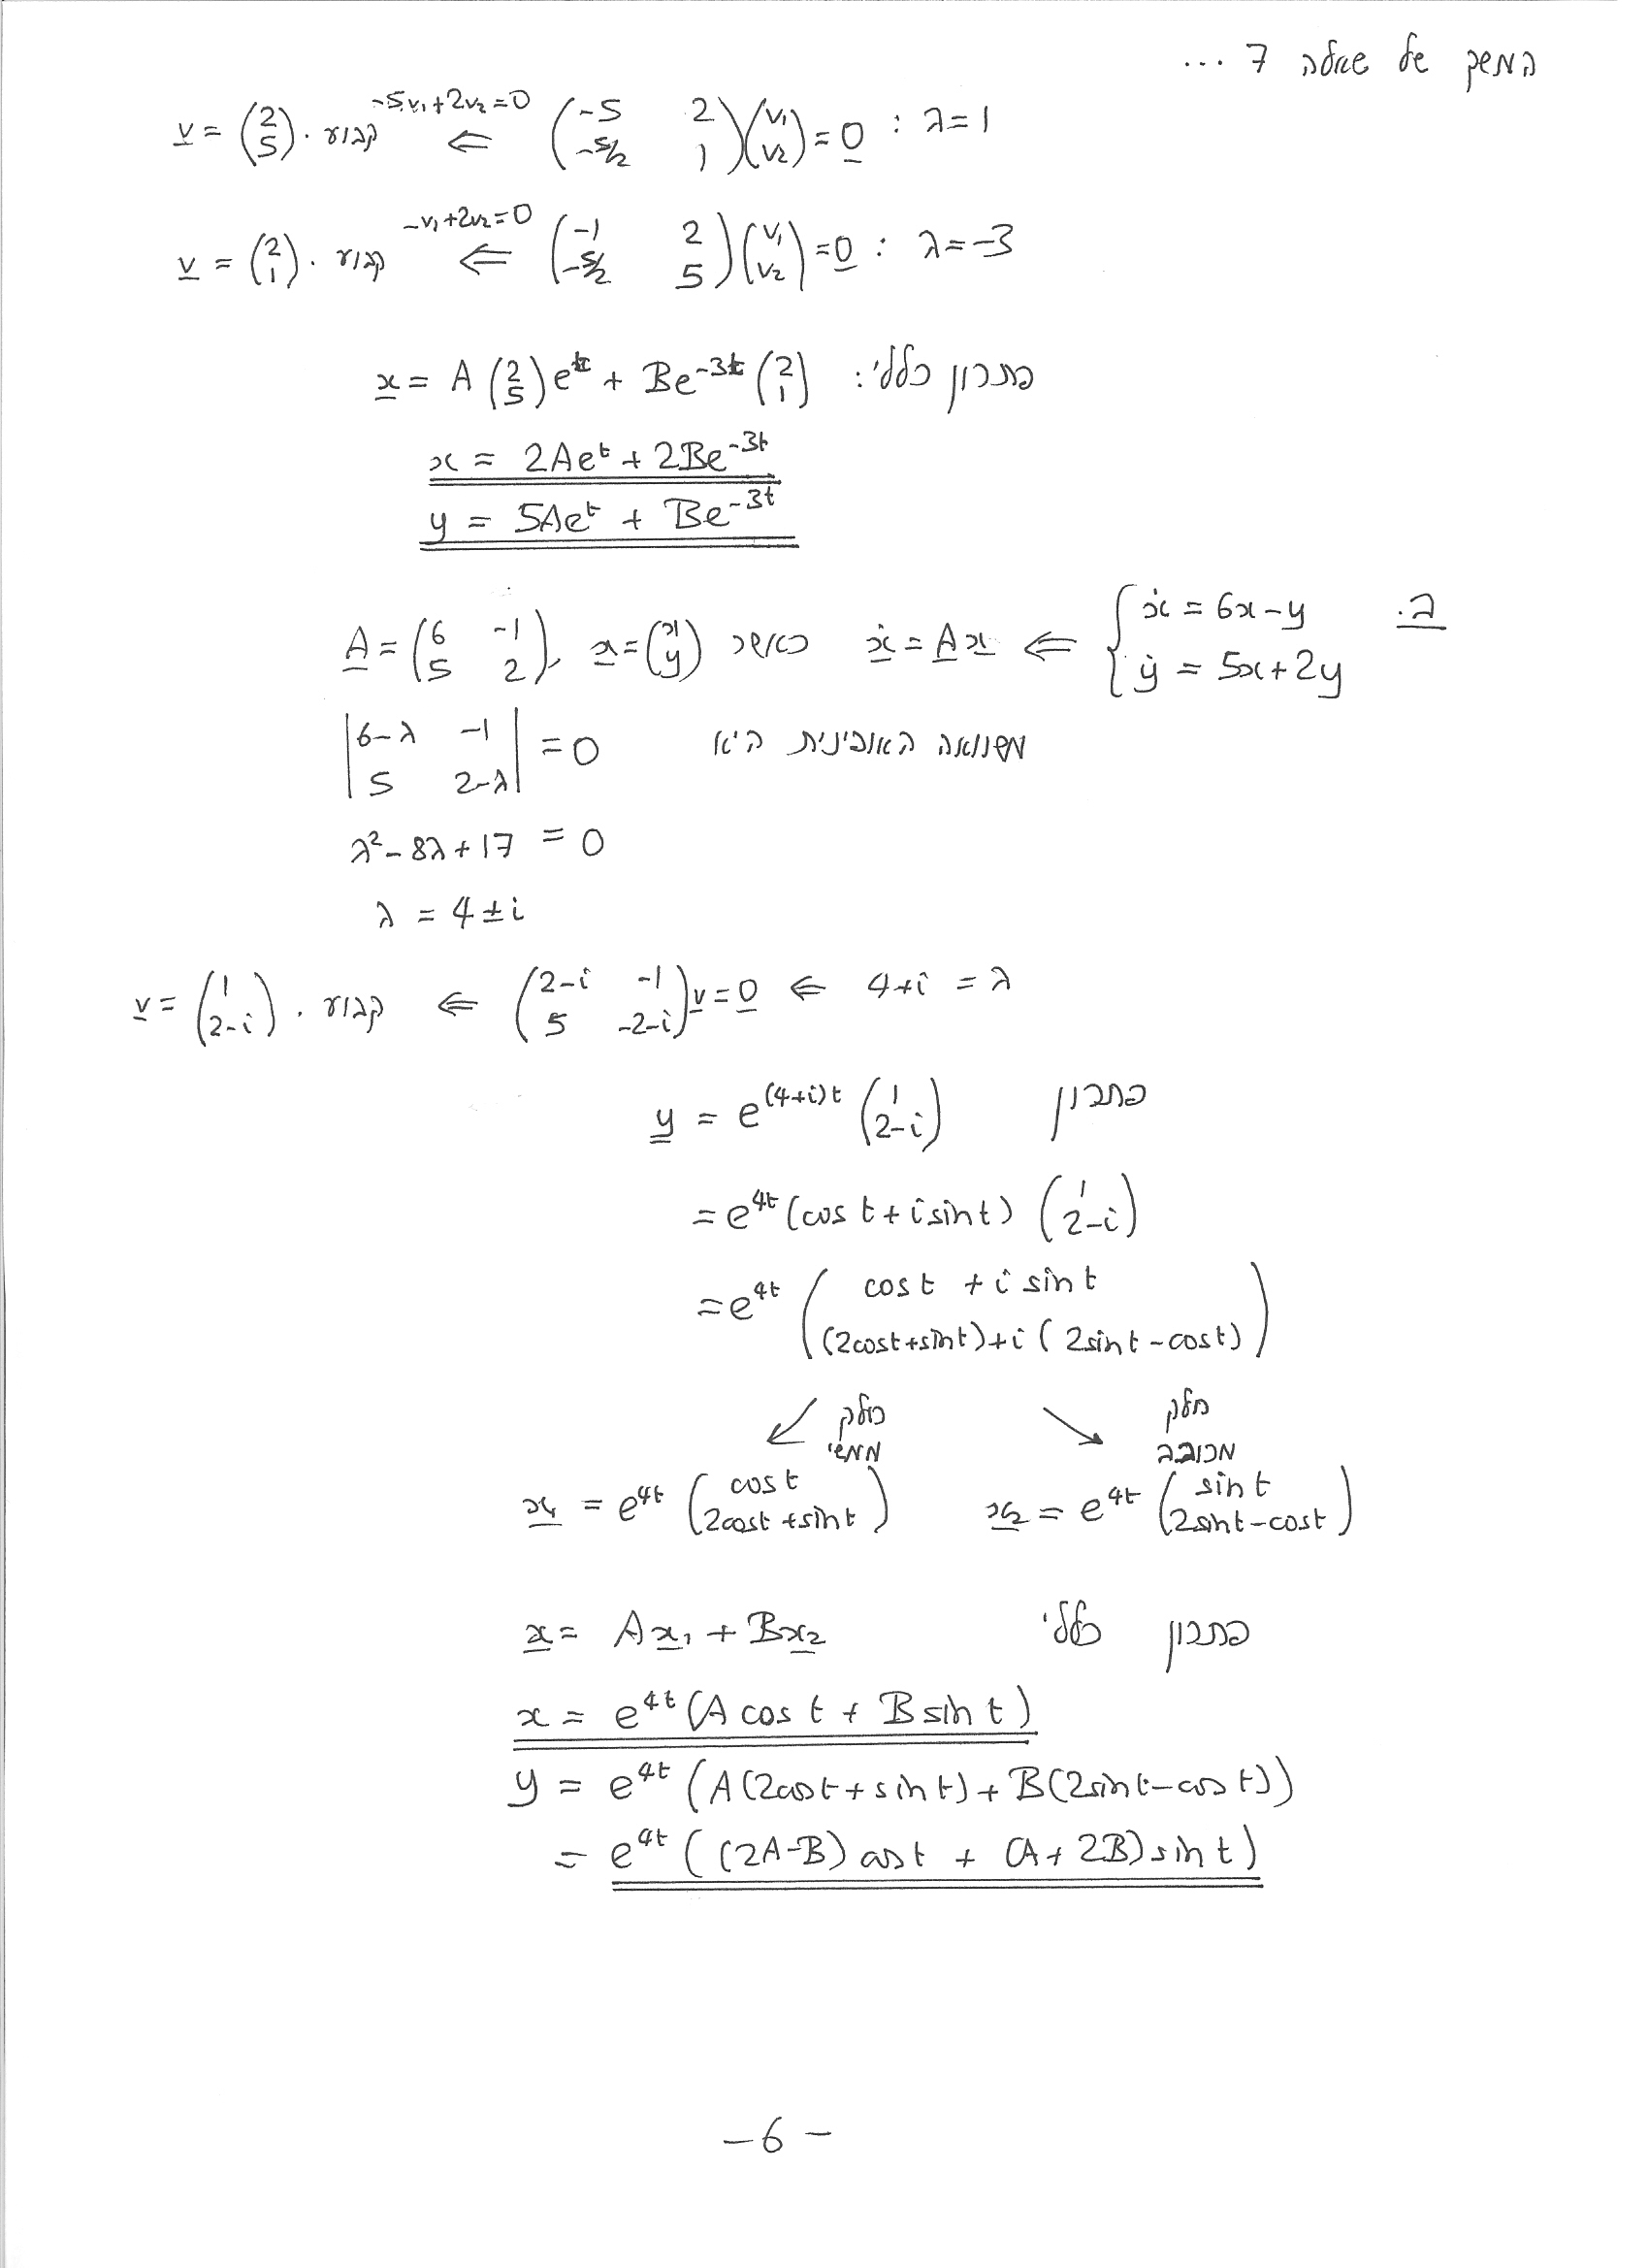 המשך של שאלה 7 ...
λ=1 : (-5 2; -5/2 1)(v₁; v₂) = 0 ⇐ -5v₁+2v₂=0 קבוע . v = (2; 5)
λ=-3 : (-1 2; -5/2 5)(v₁; v₂) = 0 ⇐ -v₁+2v₂=0 קבוע . v = (2; 1)
פתרון כללי: x = A (2; 5) e^t + Be^-3t (2; 1)
x = 2Ae^t + 2Be^-3t
y = 5Ae^t + Be^-3t
ב. { ẋ = 6x-y ; ẏ = 5x+2y ⇐ ẋ = Ax כאשר x = (x; y) , A = (6 -1; 5 2)
משוואה האופינית היא |6-λ -1; 5 2-λ| = 0
λ² - 8λ + 17 = 0
λ = 4 ± i
4+i = λ ⇐ (2-i -1; 5 -2-i) v = 0 ⇐ קבוע . v = (1; 2-i)
פתרון y = e^(4+i)t (1; 2-i)
= e^4t (cos t + i sin t) (1; 2-i)
= e^4t (cos t + i sin t; (2cos t + sin t) + i (2sin t - cos t))
חלק ממשי ↙ ↘ חלק מכובב
x₁ = e^4t (cos t; 2cos t + sin t) x₂ = e^4t (sin t; 2sin t - cos t)
פתרון כללי x = Ax₁ + Bx₂
x = e^4t (A cos t + B sin t)
y = e^4t (A(2cos t + sin t) + B(2sin t - cos t))
= e^4t ((2A-B) cos t + (A+2B) sin t)
- 6 -